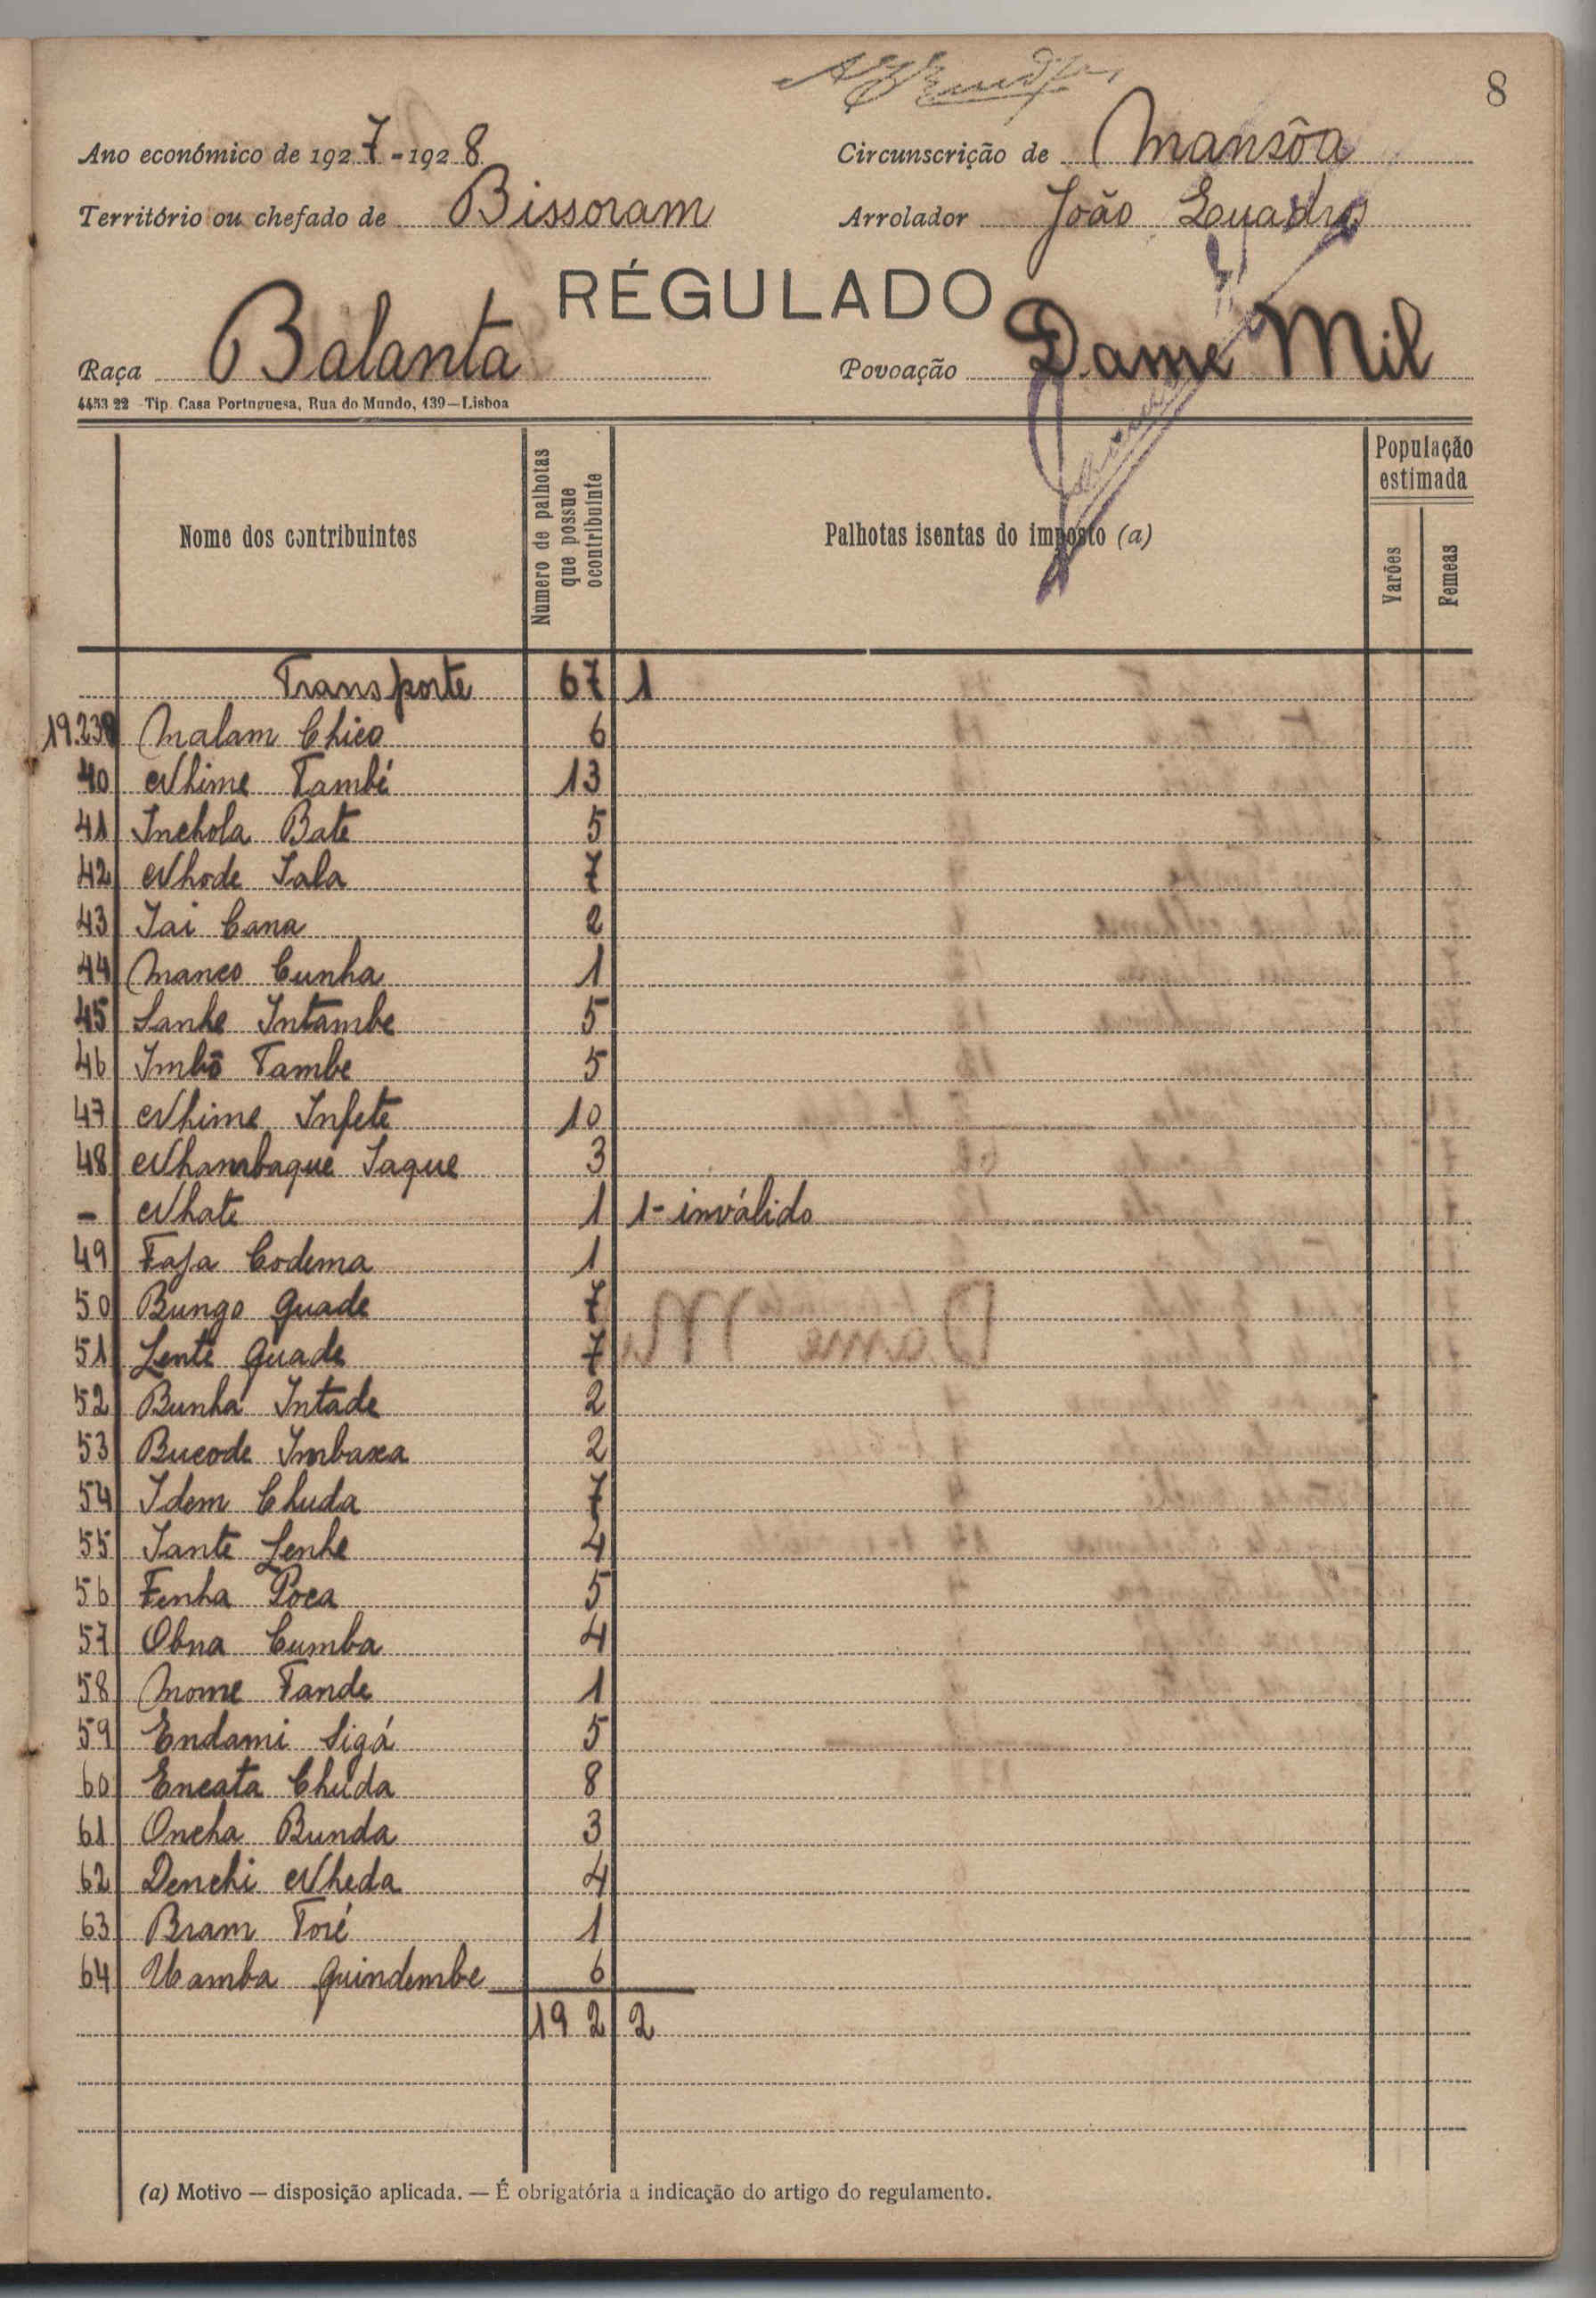 8
Ano económico de 1927-1928
Circunscrição de Mansôa
Território ou chefado de Bissoram
Arrolador João
RÉGULADO
Raça Balanta
Povoação Dame Mil
4453 22 - Tip. Casa Portuguesa, Rua do Mundo, 139—Lisboa
Nome dos contribuintes
Número de palhotas que possue ocontribuinte
Palhotas isentas do imposto (a)
População estimada
Varões
Femeas
Transporte 67 1
19.239 Malam Chico 6
40 Nhime També 13
41 Inchola Bate 5
42 Nhode Iala 7
43 Iai Cana 2
44 Manco Cunha 1
45 Sanhe Intambe 5
46 Imbô Tambe 5
47 Nhime Infete 10
48 Nhambaque Iaque 3
- Nhate 1 1- inválido
49 Fafa Codema 1
50 Bungo Quade 7
51 Lente Quade 7
52 Bunha Intade 2
53 Bucode Imbaxa 2
54 Idem Chuda 7
55 Iante Lenhe 4
56 Fenha Poca 5
57 Obna Cumba 4
58 Mome Tande 1
59 Endami Sigá 5
60 Encata Chuda 8
61 Oncha Bunda 3
62 Denchi Nheda 4
63 Bram Toré 1
64 Uamba Quindembe 6
192 2
(a) Motivo — disposição aplicada. — É obrigatória a indicação do artigo do regulamento.